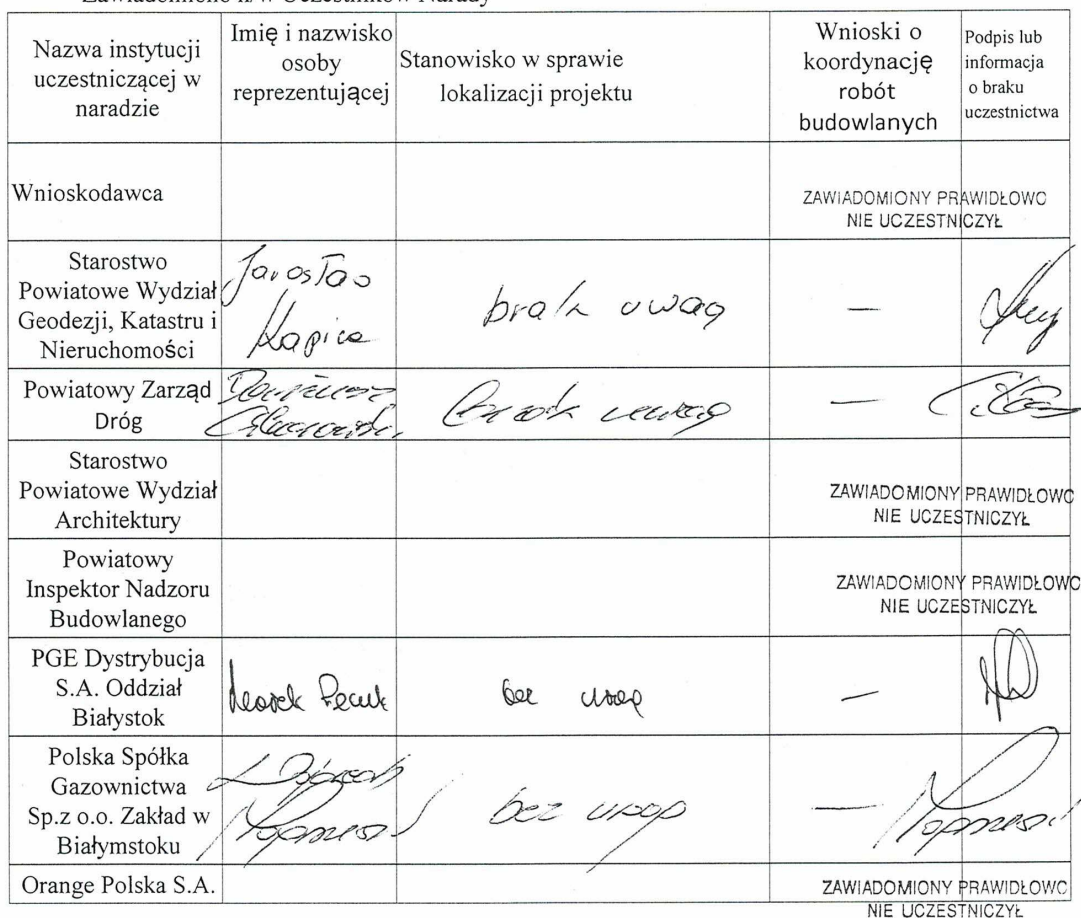 Zawiadomiono n/w Uczestników Narady
Nazwa instytucji
uczestniczącej w
naradzie
Imię i nazwisko
osoby
reprezentującej
Stanowisko w sprawie
lokalizacji projektu
Wnioski o
koordynację
robót
budowlanych
Podpis lub
informacja
o braku
uczestnictwa
Wnioskodawca
ZAWIADOMIONY PRAWIDŁOWO
NIE UCZESTNICZYŁ
Starostwo
Powiatowe Wydział
Geodezji, Katastru i
Nieruchomości
Jarosław
Kapica
brak uwag
—
Powiatowy Zarząd
Dróg
Dariusz
brak uwag
—
Starostwo
Powiatowe Wydział
Architektury
ZAWIADOMIONY PRAWIDŁOWO
NIE UCZESTNICZYŁ
Powiatowy
Inspektor Nadzoru
Budowlanego
ZAWIADOMIONY PRAWIDŁOWO
NIE UCZESTNICZYŁ
PGE Dystrybucja
S.A. Oddział
Białystok
Marek
bez uwag
—
Polska Spółka
Gazownictwa
Sp.z o.o. Zakład w
Białymstoku
bez uwag
—
Orange Polska S.A.
ZAWIADOMIONY PRAWIDŁOWO
NIE UCZESTNICZYŁ